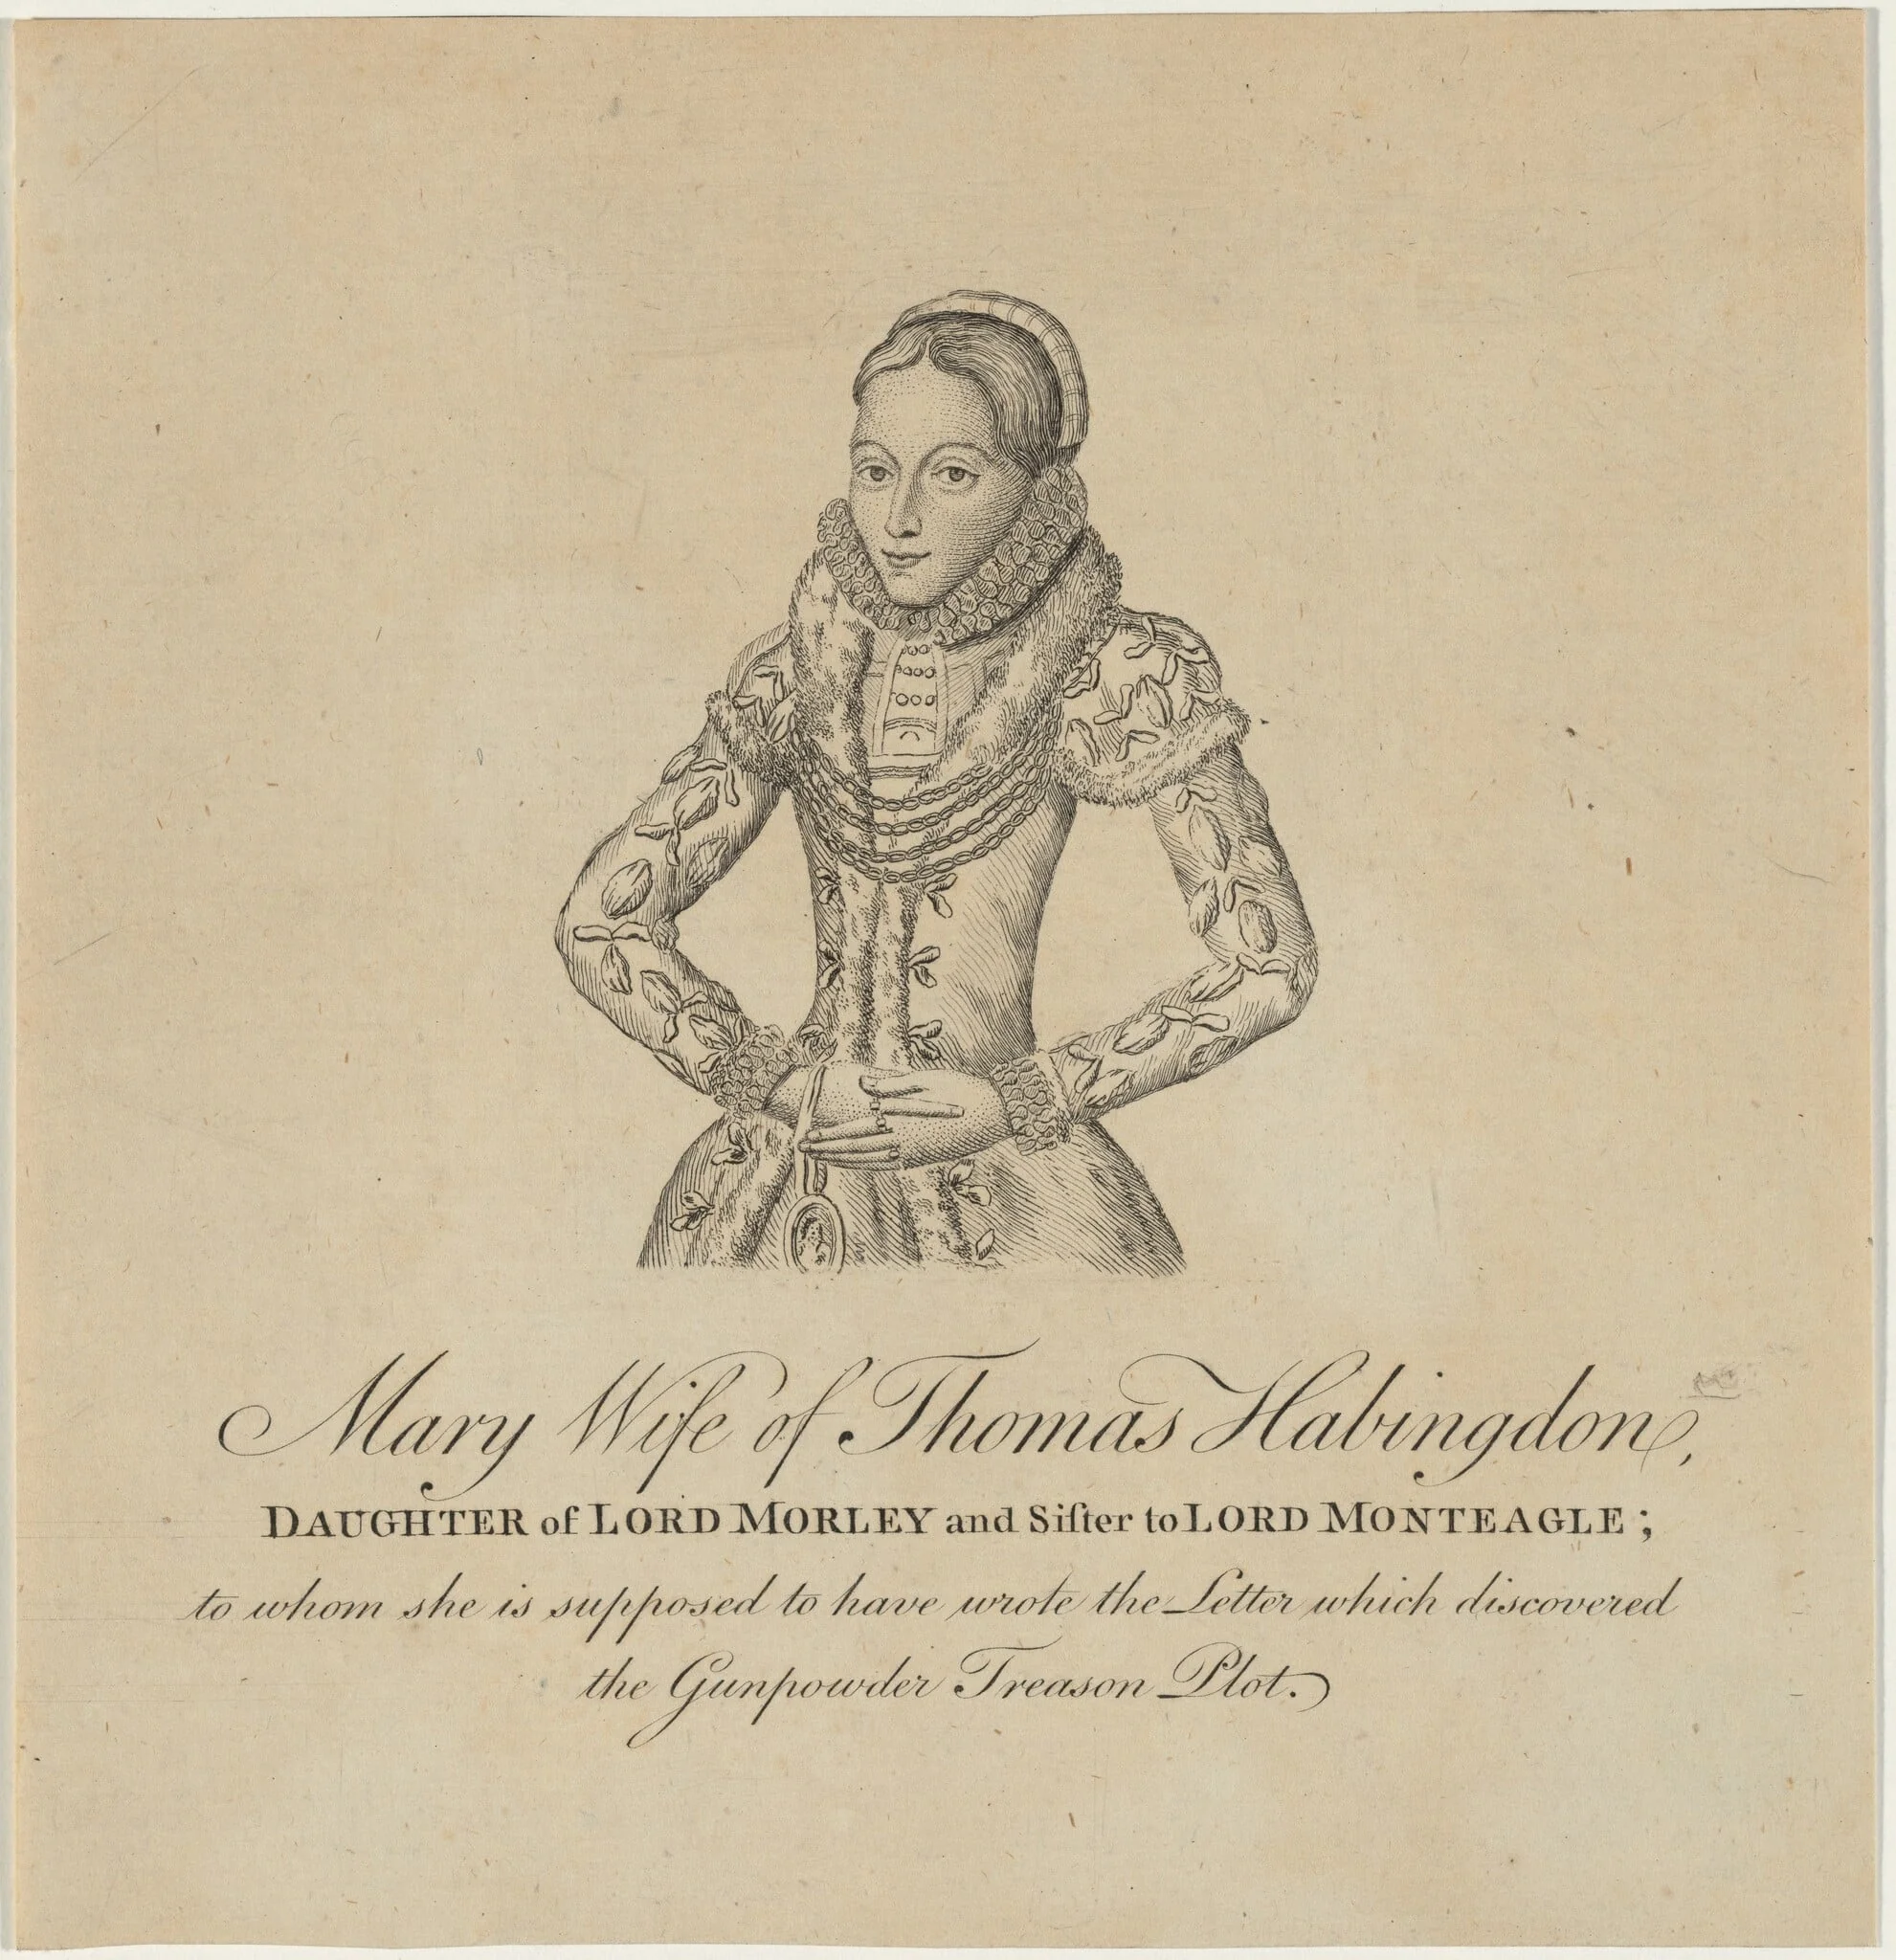 Mary Wife of Thomas Habingdon,
DAUGHTER of LORD MORLEY and Siſter to LORD MONTEAGLE;
to whom she is supposed to have wrote the Letter which discovered
the Gunpowder Treason Plot.